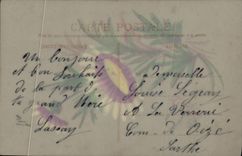 CARTE POSTALE
Un bonjour
et bon souhait
de la part de
ta grand mère
Lassay
Demoiselle
Louise Legeay
A La Verrerie
Com. de Oizé
Sarthe